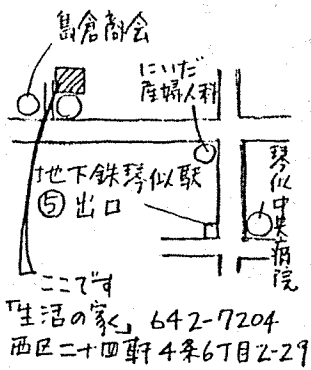 島倉商会
にいだ
産婦人科
地下鉄琴似駅
⑤出口
琴似中央病院
ここです
「生活の家く」 642-7204
西区二十四軒4条6丁目2-29